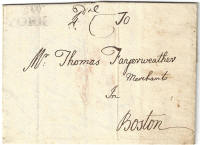 To
Mr. Thomas Fayerweather
Merchant
In
Boston